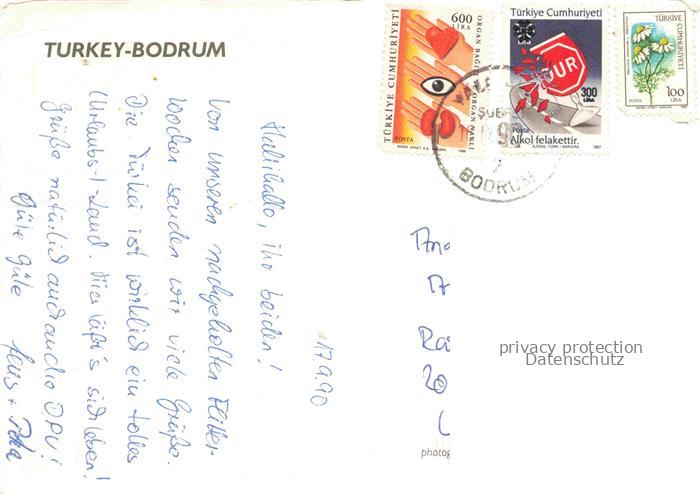 TURKEY-BODRUM
17.9.90
Hallihallo, ihr beiden!
Von unseren nachgeholten Flitter-
wochen senden wir viele Grüße.
Die Türkei ist wirklich ein tolles
(Urlaubs-) Land. Hier läßt's sich leben!
Grüße natürlich auch an die DPV!
Gute Güte
Jens + Petra
TÜRKİYE CUMHURİYETİ
600
LİRA
ORGAN BAĞIŞI ORGAN NAKLİ
POSTA
Türkiye Cumhuriyeti
Lira
DUR
300
LİRA
Posta
Alkol felakettir.
AJANS-TÜRK / ANKARA
1987
TÜRKİYE
CUMHURİYETİ
100
LİRA
POSTA
ŞUBE
BODRUM
privacy protection
Datenschutz
photog